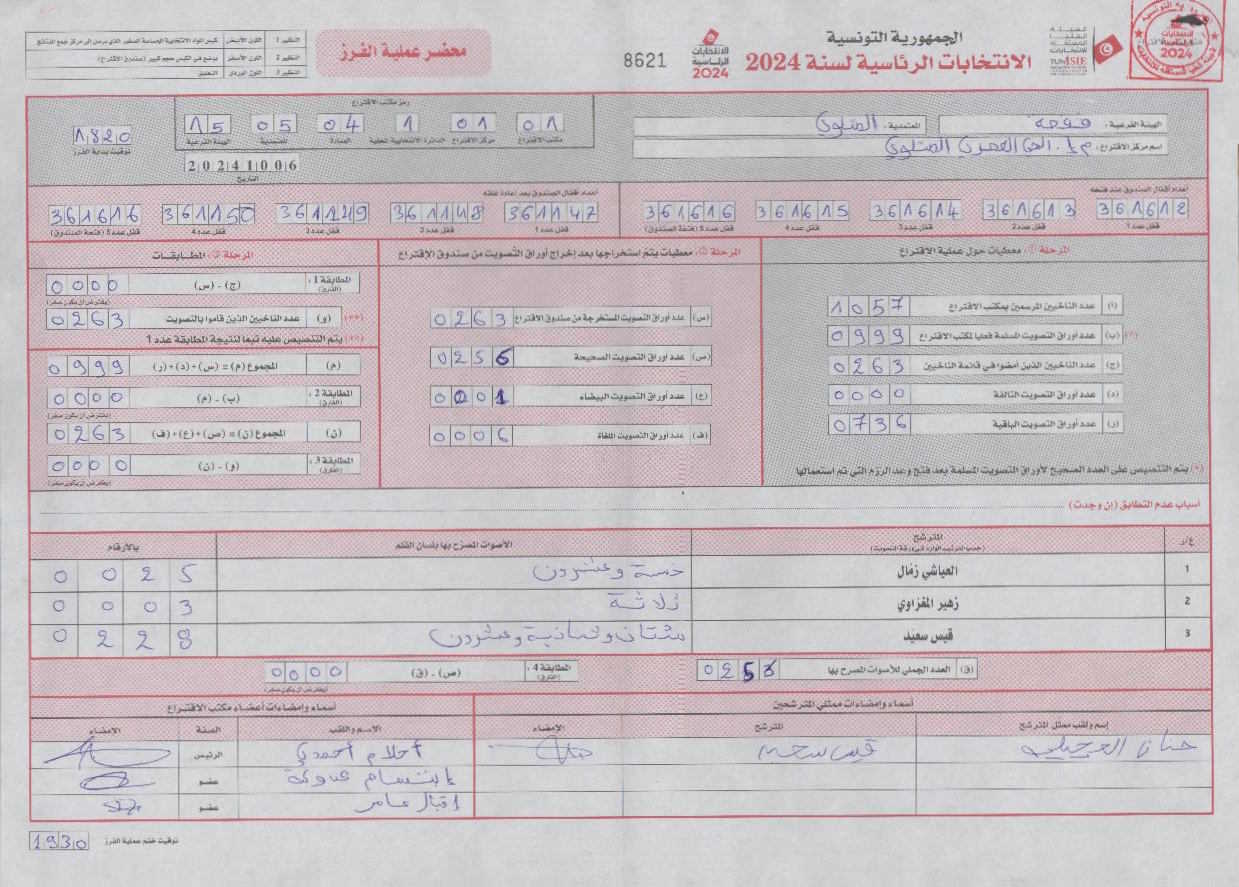 الجمهورية التونسية
الانتخابات الرئاسية لسنة 2024
الانتخابات الرئاسية 2024
8621
محضر عملية الفرز
النظير 1 اللون الأبيض
النظير 2 اللون الأصفر
النظير 3 اللون الوردي التعليق
الهيئة الفرعية : قفصة المعتمدية : المتلوي
اسم مركز الاقتراع : م إ. الحي العصري المتلوي
رمز مكتب الاقتراع
01 01 1 04 05 15
مكتب الاقتراع مركز الاقتراع الدائرة الانتخابية المحلية العمادة المعتمدية الهيئة الفرعية
20241006
التاريخ
1820
توقيت بداية الفرز
أعداد أقفال الصندوق عند فتحه
361612 361613 361614 361615 361616
قفل عدد 1 قفل عدد 2 قفل عدد 3 قفل عدد 4 قفل عدد 5 (فتحة الصندوق)
أعداد أقفال الصندوق بعد إعادة غلقه
361147 361148 361149 361150 361616
قفل عدد 1 قفل عدد 2 قفل عدد 3 قفل عدد 4 قفل عدد 5 (فتحة الصندوق)
المرحلة 1: معطيات حول عملية الاقتراع
(أ) عدد الناخبين المرسمين بمكتب الاقتراع 1057
(*) (ب) عدد أوراق التصويت المسلمة فعليا لمكتب الاقتراع 0999
(ج) عدد الناخبين الذين أمضوا في قائمة الناخبين 0263
(د) عدد أوراق التصويت التالفة 0000
(ر) عدد أوراق التصويت الباقية 0736
(*) يتم التنصيص على العدد الصحيح لأوراق التصويت المسلمة بعد فتح وعد الرزم التي تم استعمالها
المرحلة 2: معطيات يتم استخراجها بعد إخراج أوراق التصويت من صندوق الاقتراع
(س) عدد أوراق التصويت المستخرجة من صندوق الاقتراع 0263
(ص) عدد أوراق التصويت الصحيحة 0256
(ع) عدد أوراق التصويت البيضاء 0001
(ف) عدد أوراق التصويت الملغاة 0006
المرحلة 3: المطابقات
المطابقة 1 : (الفارق) (ج) - (س) 0000
(يفترض أن يكون صفر)
(**) (و) عدد الناخبين الذين قاموا بالتصويت 0263
(**) يتم التنصيص عليه تبعا لنتيجة المطابقة عدد 1
(م) المجموع (م) = (س)+(د)+(ر) 0999
المطابقة 2 : (الفارق) (ب) - (م) 0000
(يفترض أن يكون صفر)
(ن) المجموع (ن) = (ص)+(ع)+(ف) 0263
المطابقة 3 : (الفارق) (و) - (ن) 0000
(يفترض أن يكون صفر)
أسباب عدم التطابق (إن وجدت)
ع/ر المترشح الأصوات المصرح بها بلسان القلم بالأرقام
(حسب الترتيب الوارد في ورقة التصويت)
1 العياشي زمّال خمسة وعشرون 0025
2 زهير المغزاوي ثلاثة 0003
3 قيس سعيّد مئتان وثمانية وعشرون 0228
(ق) العدد الجملي للأصوات المصرح بها 0256
المطابقة 4 : (الفارق) (ص) - (ق) 0000
(يفترض أن يكون صفر)
أسماء وإمضاءات ممثلي المترشحين
إسم ولقب ممثل المترشح المترشح الإمضاء
حنان قيس سعيد
أسماء وإمضاءات أعضاء مكتب الاقتراع
الاسم واللقب الصفة الإمضاء
أحلام أحمدي الرئيس
إبتسام عضو
إقبال عامر عضو
1930 توقيت ختم عملية الفرز